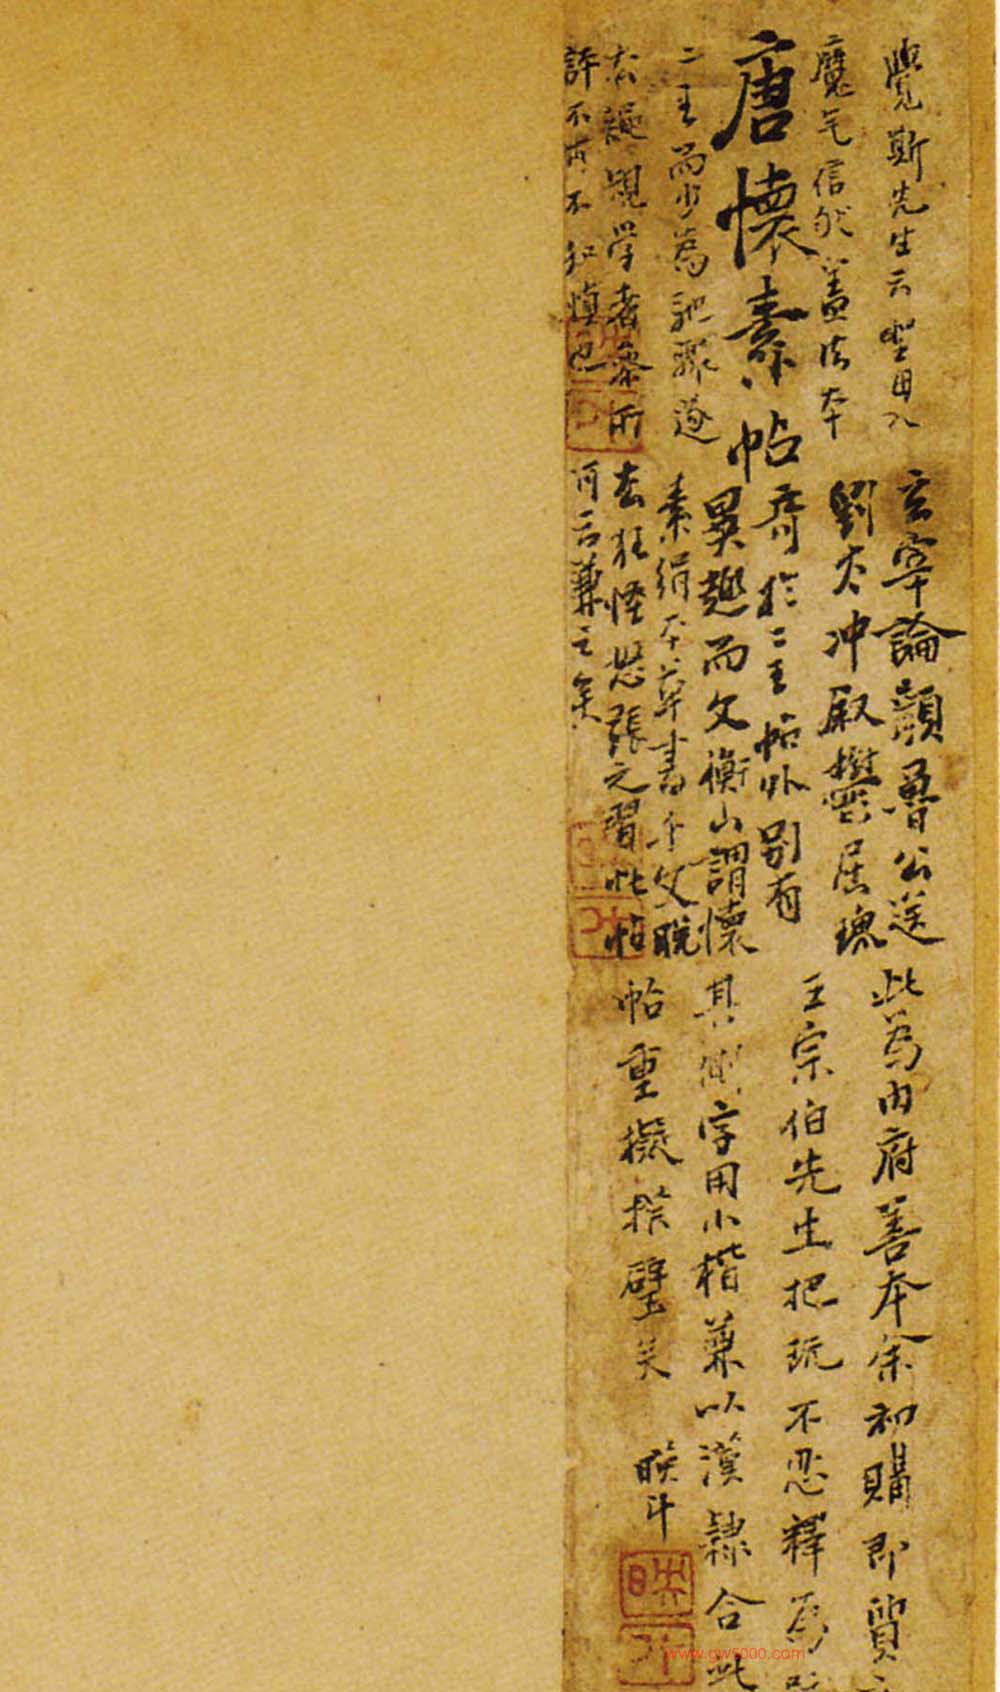 覺斯先生云
魔气信然蓋法本
唐懷素帖
二王而少為馳驟遂
學者參所
許不可不知慎也
玄宰論顏魯公送
劉太冲叙鬱屈瑰
奇於二王帖外別有
異趣而文衡山謂懷
素絹本草書千文脫
去狂怪怒張之習此帖
可云兼之矣
此為内府善本余初購即質
王宗伯先生把玩不忍釋為
其側字用小楷兼以漢隸合此
帖重擬拱璧矣
映斗
www.gw5000.com